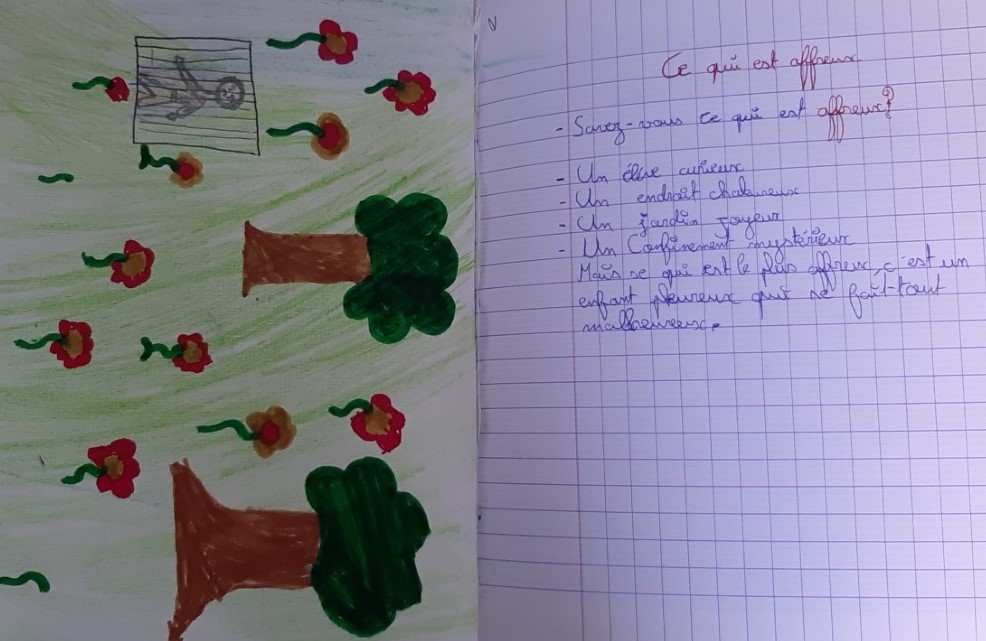 Ce qui est affreux
- Savez-vous ce qui est affreux?
- Un élève curieux
- Un endroit chaleureux
- Un jardin joyeux
- Un Confinement mystérieux
Mais se qui est le plus affreux, c'est un
enfant peureux qui se fait tout
malheureux.